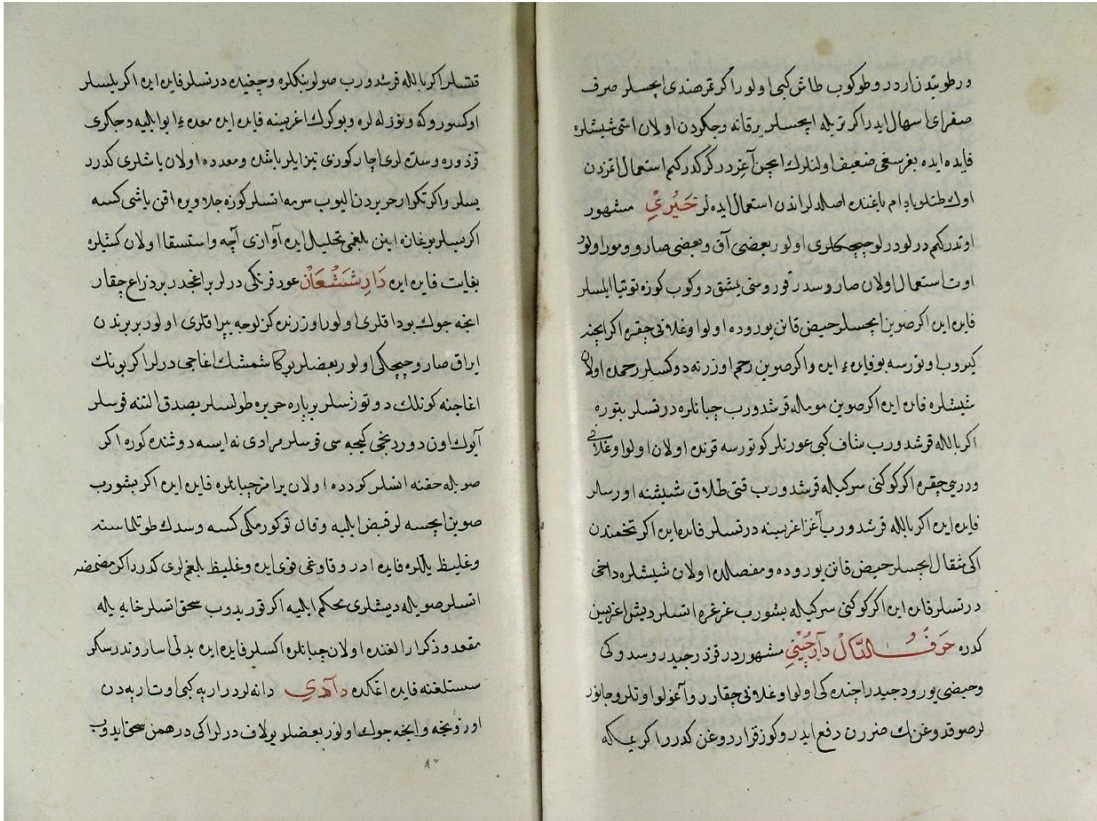 ورطوبتدن ازاردر وطوكوب طاش كبى اولور اكر تمرهندى ايچسلر صرف
صفراى اسهال ايدر اكر تريله ايچسلر يرقانه وجكردن اولان اسى شيشلره
فايده ايده بغرسغى ضعيف اولنلرك ايچن آغرر در كركدركم استعمال اتمزدن
اوك طتلو بادام ياغنده اصلدلر اندن استعمال ايدهلر خَيْرِيْ مشهور
اوتدركم درلو درلو چيچكلرى اولور بعضى آق وبعضى صارو ومور اولور
اوت استعمال اولان صاروسدر قوروسنى يمشق دوكوب كوزه توتيا ايلسلر
فايده ايده اكر صوين ايچسلر حيض قانن يوروده اولو اوغلانى چقره اكر ايچنه
كيروب اوتورسه بو فايدهء ايده واكر صوين رحم اوزرنه دوكسلر رحمده اولان
شيشلره فايده ايده اكر صوين موماله قرشدورب چبانلره درتسلر بتوره
اكر باللاله قرشدورب شاف كبى عورتلر كوتورسه قرنده اولان اولو اوغلانى
ودرسى چقره اكر كوكنى سركيله قرشدورب قتى طلاق شيشنه اورسلر
فايده ايده اكر باللاله قرشدورب آغز اغريسنه درتسلر فايده ايده اكر تخمندن
اكى مثقال ايچسلر حيض قانن يوروده ومفصلده اولان شيشلره داخى
درتسلر فايده ايده اكر كوكنى سركيله بشورب غرغره اتسلر ديش اغريسن
كدره حَرْفُ الدَّالْ دَارچِينِي مشهور در قزدرجيدر وسدوكى
وحيضى يورودجيدر ايچنده كى اولو اوغلانى چقارر و آغولو اوتلر وجانور
لر صوقدوغنك ضررن دفع ايدر وكوز قراردوغن كدرر اكر يمكه
قتسلر اكر باللاله قرشدورب صولو بنكلره وچغيده درتسلر فايده ايده اكر يسلر
اوكسوروكه ونوزلهلره وبوكرك اغريسنه فايده ايده معدهء ايو ايليه وجكرى
قزدوره وسدهلرى اچار كوزى تيز ايلر باشده ومعدهده اولان ياشلرى كدرر
يسلر واكر تكرار حريردن اليوب سرمه اتسلر كوزه جلا ويره اقن ياشى كسه
اكر يسلر بوغازه اينن بلغمى تحليل ايده آوازى آچه واستسقا اولان كشيلره
بغايت فايده ايده دَارِشِيشْعَانْ عود فرنكى درلر بر اغجدر بر ذراع چقار
انجه چوك بوداقلرى اولور اوزرنده كزلوجه يپراقلرى اولور بربرندن
ايراق صارو چيچكى اولور بعضلر بوكا شمشك اغاجى درلر اكر بونك
اغاجنه كونلك دوتوزسلر بر پاره حريره طولسلر يصدق التنه قوسلر
آيوك اون دوردنجى كيجهسى قوسلر مرادى نه ايسه دوشنده كوره اكر
صويله حقنه اتسلر كودده اولان يرامز چبانلره فايده ايده اكر بشورب
صوين ايچسه لر قبض ايليه وقان توكورمكى كسه وسدك طوتلماسنه
وغليظ يللره فايده ادر وقاوغى قوى ايده وغليظ بلغملرى كدرر اكر مضمضه
اتسلر صويله ديشلرى محكم ايليه اكر قوريدوب سحق اتسلر خايه يله
مقعد وذكر ارالغنده اولان چبانلره اكسلر فايده ايده بدلى ساروندر سكر
سستلغنه فايده اغكده دَآمدِي دانهلردر اربه كبى اوت اربهدن
اوزونجه وانجه چوك اولور بعضلر يولاف درلر اكى درهمن سحق ايدوب
٨٠